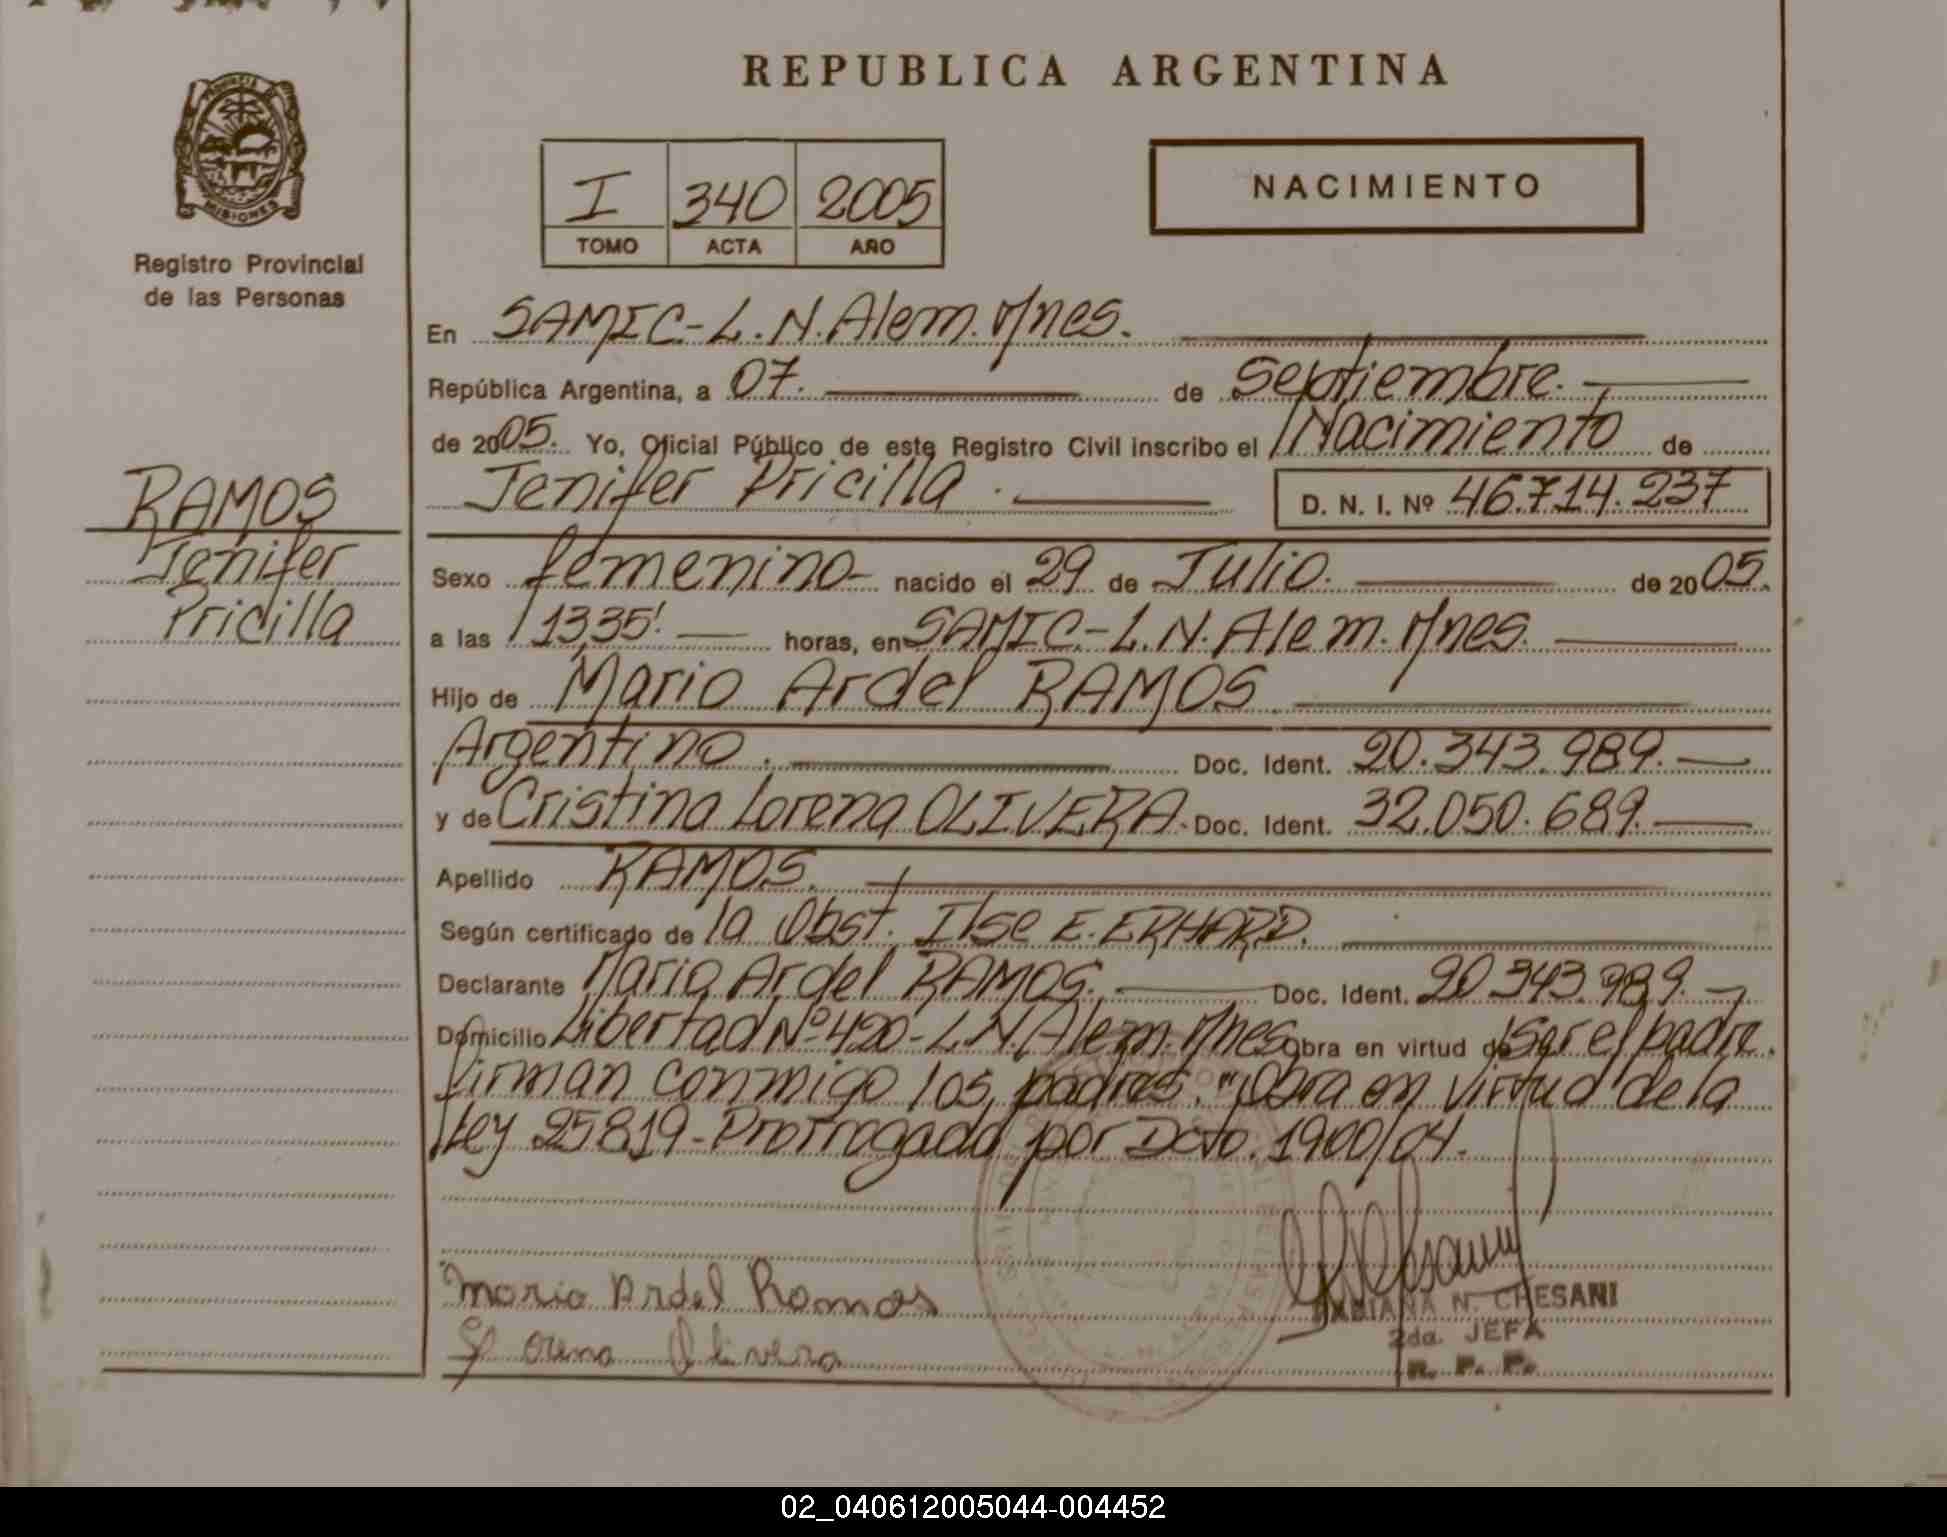 REPUBLICA ARGENTINA
PROVINCIA DE
MISIONES
Registro Provincial
de las Personas
I 340 2005
TOMO ACTA AÑO
NACIMIENTO
En SAMIC-L.N.Alem.Mnes.
República Argentina, a 07. de Septiembre.
de 2005. Yo, Oficial Público de este Registro Civil inscribo el Nacimiento de
Jenifer Pricilla. D. N. I. Nº 46.714.237
RAMOS
Jenifer
Pricilla
Sexo femenino nacido el 29 de Julio. de 2005.
a las 13,35'. horas, en SAMIC-L.N.Alem.Mnes.
Hijo de Mario Ardel RAMOS
Argentino. Doc. Ident. 20.343.989.
y de Cristina Lorena OLIVERA. Doc. Ident. 32.050.689.
Apellido RAMOS.
Según certificado de la Obst. Ilse E. ERHARD.
Declarante Mario Ardel RAMOS. Doc. Ident. 20.343.989.
Domicilio Libertad Nº 420-L.N.Alem.Mnes Obra en virtud de Ser el padre.
firman conmigo los padres. "Obra en virtud de la
Ley 25819-Prorrogada por Dcto. 1900/04.
Mario Ardel Ramos
Lorena Olivera
FABIANA N. CHESANI
2da. JEFA
R. P. P.
02_040612005044-004452